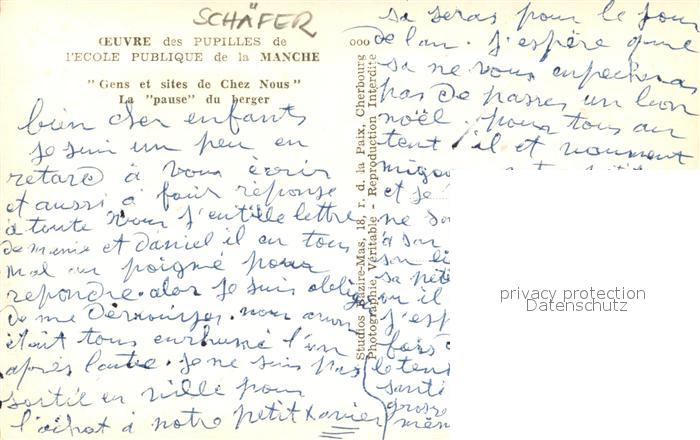 SCHÄFER
ŒUVRE des PUPILLES de
l'ECOLE PUBLIQUE de la MANCHE
"Gens et sites de Chez Nous"
La "pause" du berger
bien cher enfants
je suis un peu en
retard à vous écrir
et aussi à fair réponse
à toute vous gentille lettre
de manie et Daniel il on tous
mal au poigné pour
repondre. alor je suis obligé
de me
nous avons
était tous enrhumé l'un
après l'autre. je ne suis pas
sortie en ville pour
l'achat à notre petit Xavier
ooo
Studios Bazire-Mas, 18, r. d. la Paix, Cherbourg
Photographie Véritable - Reproduction Interdite
sa seras pour le jour
de l'an. j'espère que
sa ne vous enpecheras
pas de passer un bon
noël. pour tous au
tent il et vraiment
et je
ne
à son
son
sa peti
ou il
j'esp
fois
le ten
santé
grosse
mém
privacy protection
Datenschutz